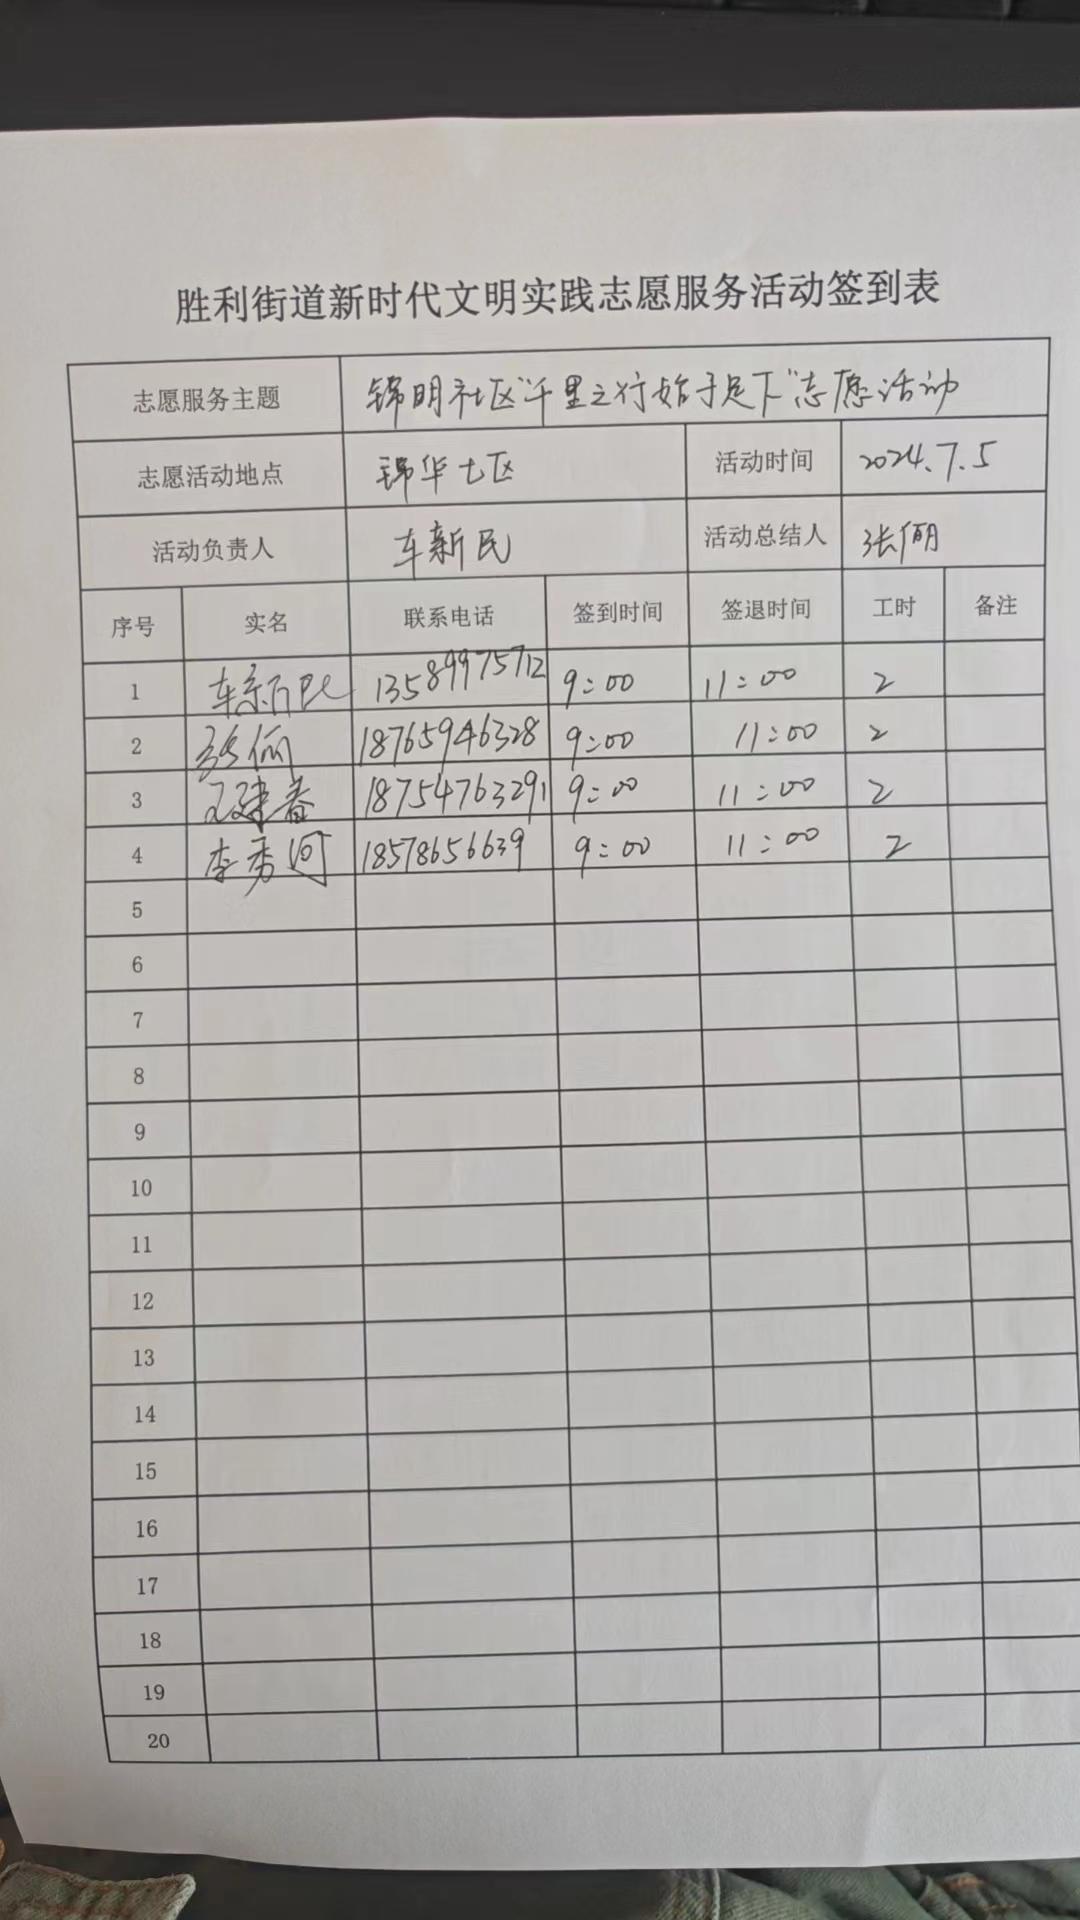 胜利街道新时代文明实践志愿服务活动签到表
志愿服务主题 锦明社区“千里之行始于足下”志愿活动
志愿活动地点 锦华七区 活动时间 2024.7.5
活动负责人 车新民 活动总结人 张俪
序号 实名 联系电话 签到时间 签退时间 工时 备注
1 车新民 13589975712 9:00 11:00 2
2 张俪 18765946328 9:00 11:00 2
3 王建春 18754763291 9:00 11:00 2
4 李秀河 18578656639 9:00 11:00 2
5
6
7
8
9
10
11
12
13
14
15
16
17
18
19
20